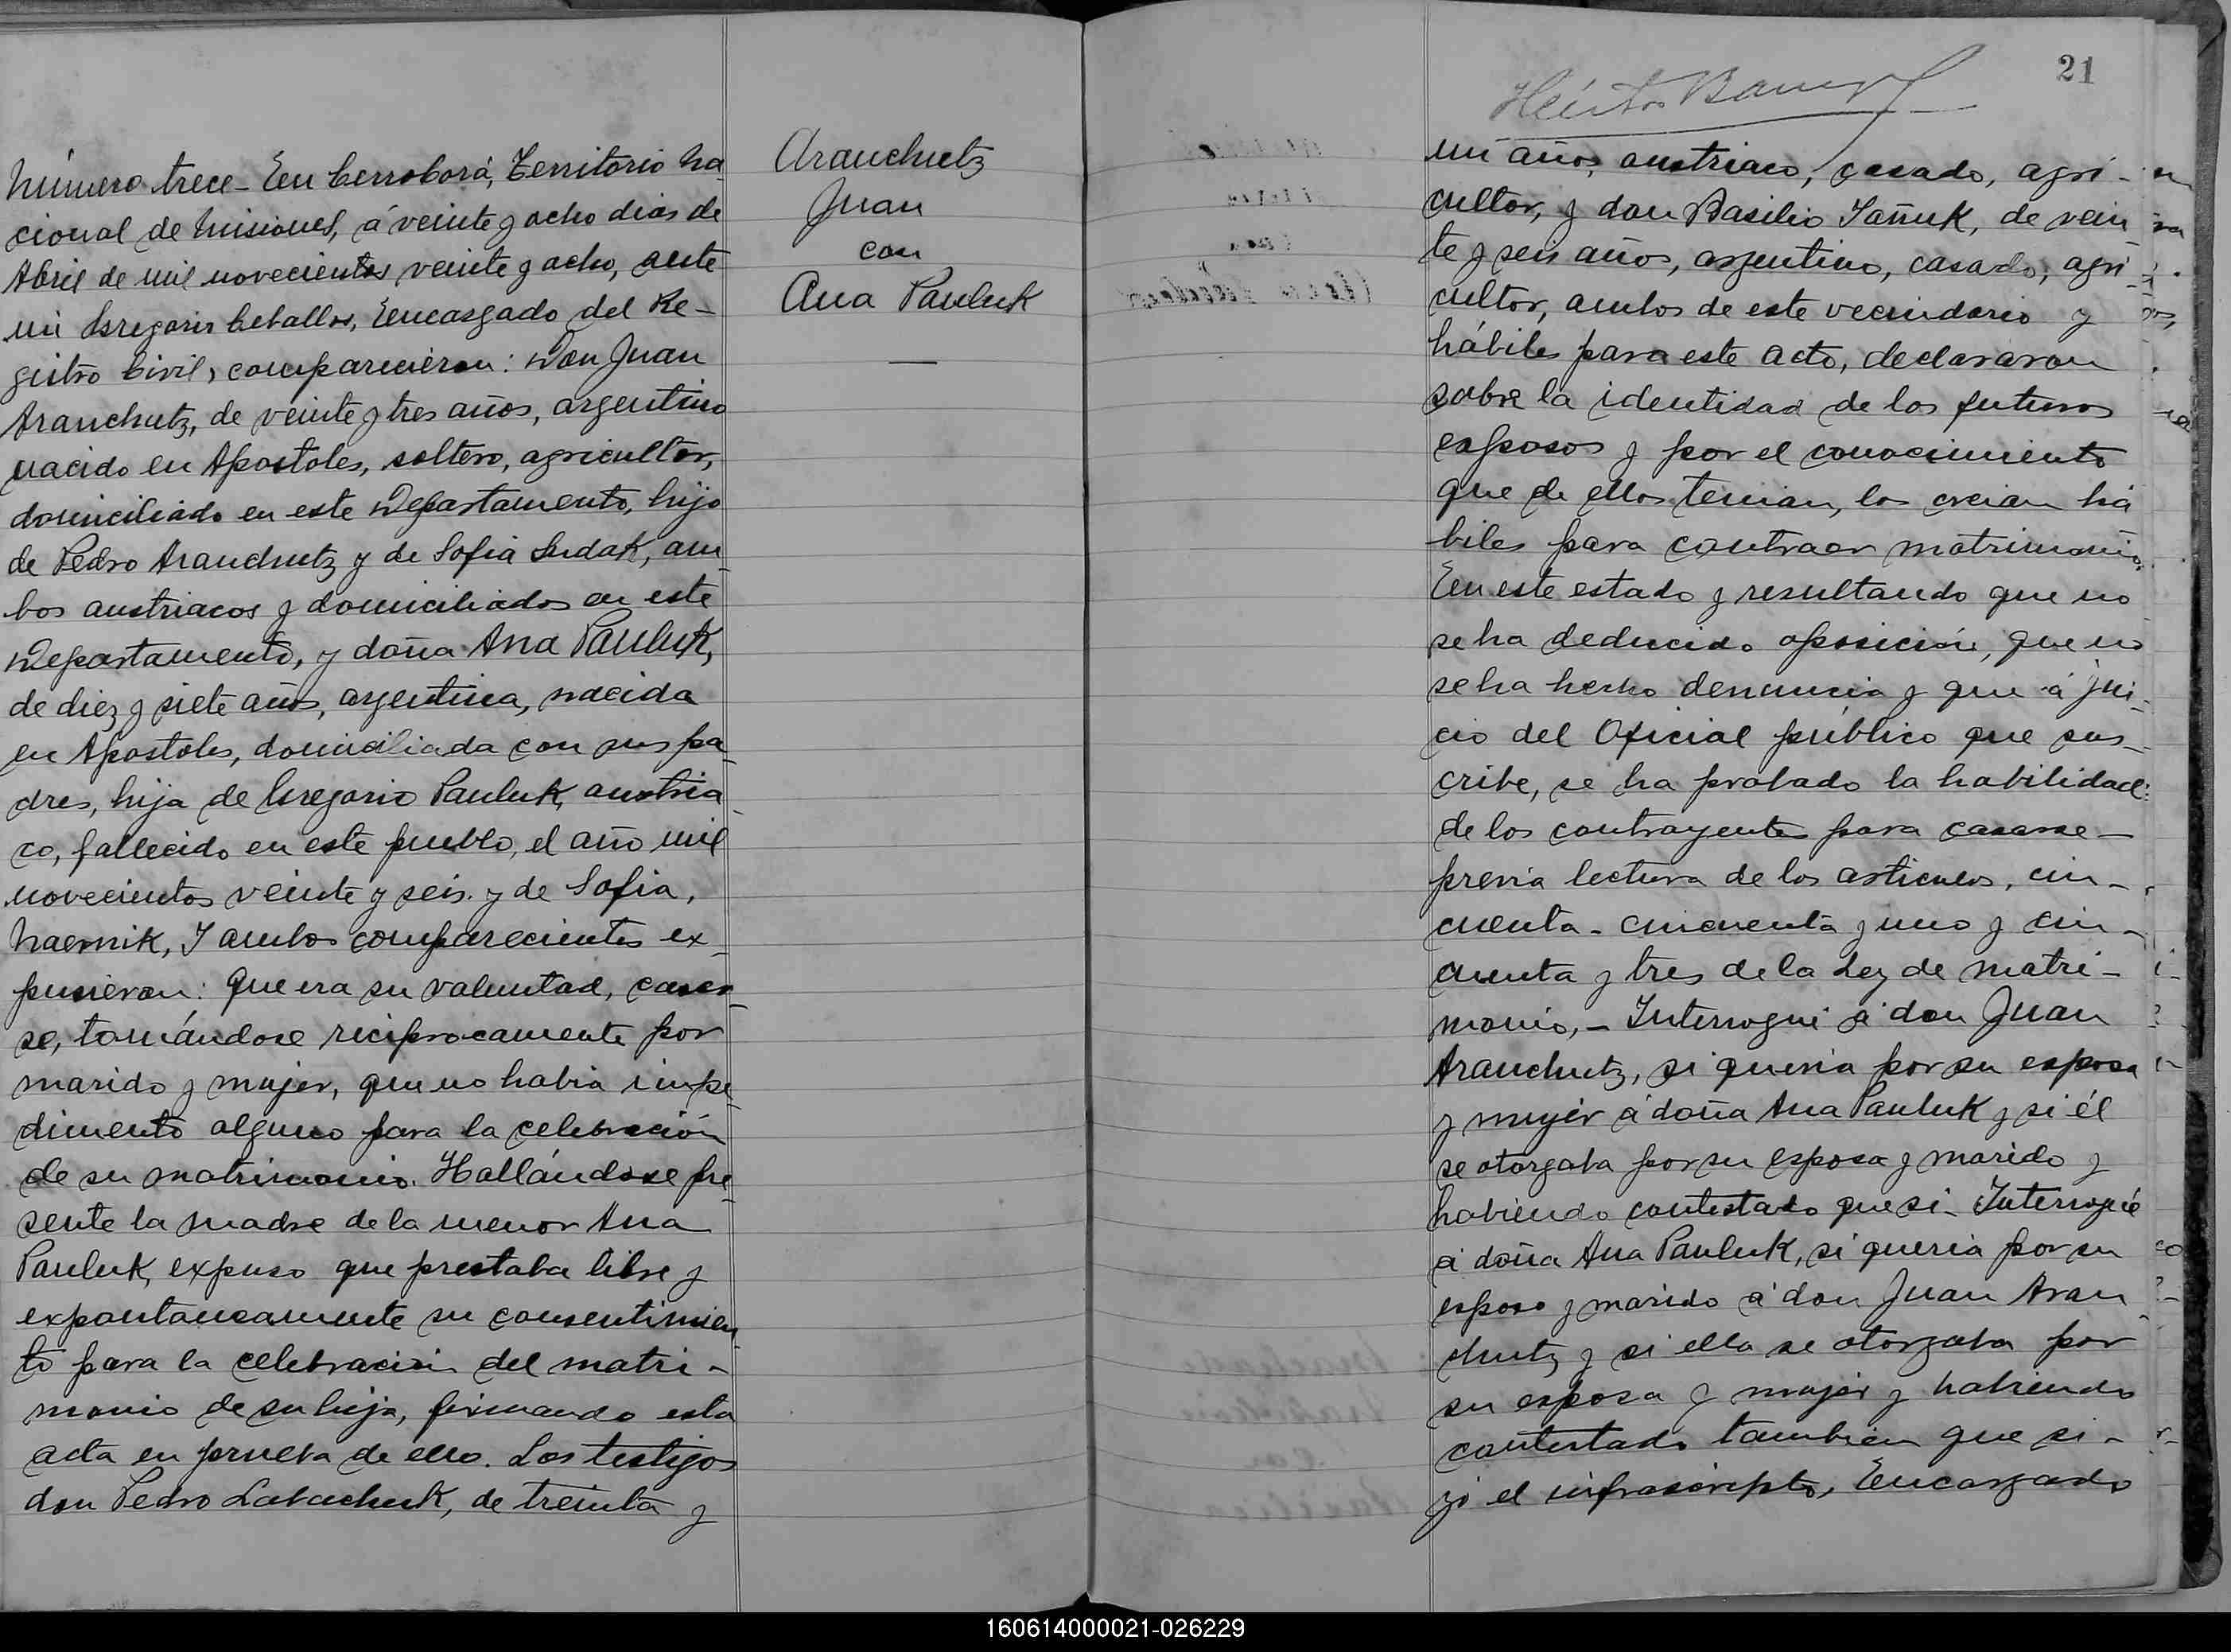 Número trece - En Cerro Corá, Territorio Na-
cional de Misiones, á veinte y ocho dias de
Abril de mil novecientos veinte y ocho, ante
mi Gregorio Ceballos, Encargado del Re-
gistro Civil, comparecieron: Don Juan
Aranchutz, de veinte y tres años, argentino
nacido en Apostoles, soltero, agricultor,
domiciliado en este Departamento, hijo
de Pedro Aranchutz y de Sofia Sudak, am-
bos austriacos y domiciliados en este
Departamento, y doña Ana Pauluk,
de diez y siete años, argentina, nacida
en Apostoles, domiciliada con sus pa-
dres, hija de Gregorio Pauluk, austria-
co, fallecido en este pueblo, el año mil
novecientos veinte y seis y de Sofia,
Y ambos comparecientes ex-
pusieron: Que era su voluntad, casar-
se, tomándose reciprocamente por
marido y mujer, que no habia impe-
dimento alguno para la celebración
de su matrimonio. Hallándose pre-
sente la madre de la menor Ana
Pauluk, expuso que prestaba libre y
expontaneamente su consentimien-
to para la celebración del matri-
monio de su hija, firmando esta
acta en prueba de ello. Los testigos
don Pedro Labachuk, de treinta y
Aranchutz
Juan
con
Ana Pauluk
—
21
Héctor
un años, austriaco, casado, agri-
cultor, y don Basilio Yañuk, de vein
te y seis años, argentino, casado, agri-
cultor, ambos de este vecindario y
hábiles para este acto, declararon
sobre la identidad de los futuros
esposos y por el conocimiento
que de ellos tenian, los creian há
biles para contraer matrimonio.
En este estado y resultando que no
se ha deducido oposición, que no
se ha hecho denuncia y que á jui-
cio del Oficial público que sus-
cribe, se ha probado la habilidad
de los contrayentes para casarse -
previa lectura de los articulos, cin-
cuenta - cincuenta y uno y cin-
cuenta y tres de la Ley de matri-
monio, - Interrogué á don Juan
Aranchutz, si queria por su esposa
y mujer á doña Ana Pauluk y si él
se otorgaba por su esposo y marido y
habiendo contestado que si - Interrogué
á doña Ana Pauluk, si queria por su
esposo y marido á don Juan Aran-
chutz y si ella se otorgaba por
su esposa y mujer y habiendo
contestado tambien que si -
yo el infrascripto, Encargado
160614000021-026229